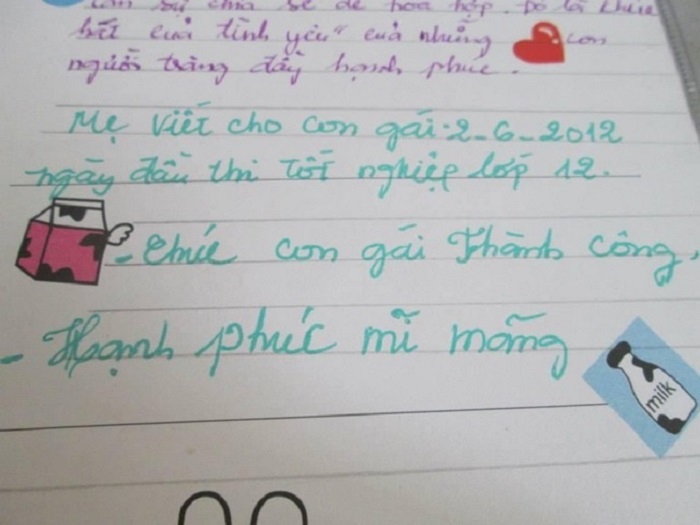 cần sự chia sẻ để hòa hợp. Đó là khúc
hát của tình yêu của những con
người tràng đầy hạnh phúc.
Mẹ viết cho con gái: 2-6-2012
ngày đầu thi tốt nghiệp lớp 12.
- Chúc con gái thành công,
- Hạnh phúc mĩ mãng
milk